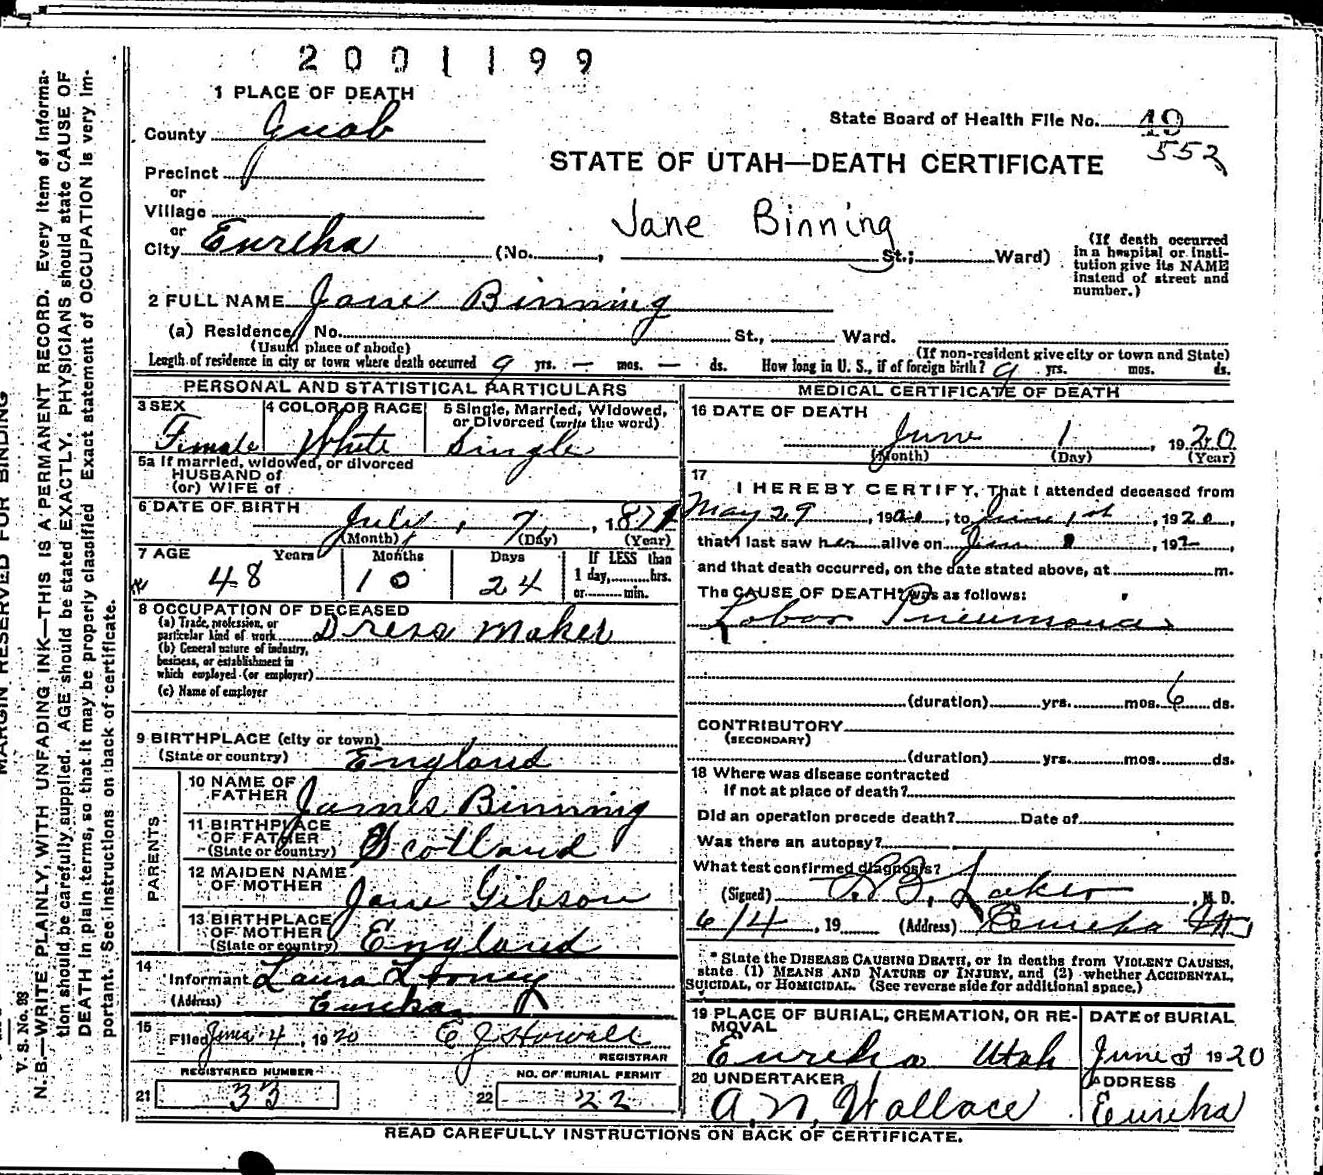 2001199
1 PLACE OF DEATH
County Juab
State Board of Health File No. 19
552
STATE OF UTAH—DEATH CERTIFICATE
Precinct
or
Village
or
Jane Binning
City Eureka (No. , St.; Ward)
(If death occurred in a hospital or institution give its NAME instead of street and number.)
2 FULL NAME Jane Binning
(a) Residence No. St., Ward.
(Usual place of abode) (If non-resident give city or town and State)
Length of residence in city or town where death occurred 9 yrs. — mos. — ds. How long in U. S., if of foreign birth? 9 yrs. mos. ds.
PERSONAL AND STATISTICAL PARTICULARS
3 SEX
Female
4 COLOR OR RACE
White
5 Single, Married, Widowed,
or Divorced (write the word)
Single
5a If married, widowed, or divorced
HUSBAND of
(or) WIFE of
6 DATE OF BIRTH
July, 7, 1871
(Month) (Day) (Year)
7 AGE Years Months Days If LESS than
1 day, hrs.
or min.
48 10 24
8 OCCUPATION OF DECEASED
(a) Trade, profession, or
particular kind of work Dress Maker
(b) General nature of industry,
business, or establishment in
which employed (or employer)
(c) Name of employer
9 BIRTHPLACE (city or town)
(State or country) England
PARENTS
10 NAME OF
FATHER James Binning
11 BIRTHPLACE
OF FATHER
(State or country) Scotland
12 MAIDEN NAME
OF MOTHER Jane Gibson
13 BIRTHPLACE
OF MOTHER
(State or country) England
14
Informant Laura Looney
(Address) Eureka
15
Filed June 4, 1920 E J Howell
REGISTRAR
21 REGISTERED NUMBER
33
22 NO. OF BURIAL PERMIT
22
MEDICAL CERTIFICATE OF DEATH
16 DATE OF DEATH
June 1, 1920
(Month) (Day) (Year)
17
I HEREBY CERTIFY, That I attended deceased from
May 29, 1920, to June 1st, 1920,
that I last saw her alive on June 1, 192,
and that death occurred, on the date stated above, at m.
The CAUSE OF DEATH* was as follows:
Lobar Pneumonia
(duration) yrs. mos. 6 ds.
CONTRIBUTORY
(SECONDARY)
(duration) yrs. mos. ds.
18 Where was disease contracted
if not at place of death?
Did an operation precede death? Date of
Was there an autopsy?
What test confirmed diagnosis?
(Signed) M. D.
6/4, 19 (Address) Eureka Ut
* State the DISEASE CAUSING DEATH, or in deaths from VIOLENT CAUSES,
state (1) MEANS AND NATURE OF INJURY, and (2) whether ACCIDENTAL,
SUICIDAL, or HOMICIDAL. (See reverse side for additional space.)
19 PLACE OF BURIAL, CREMATION, OR RE-
MOVAL
Eureka Utah
DATE of BURIAL
June 3 1920
20 UNDERTAKER
A. N. Wallace
ADDRESS
Eureka
READ CAREFULLY INSTRUCTIONS ON BACK OF CERTIFICATE.
MARGIN RESERVED FOR BINDING
V. S. No. 93
N. B.—WRITE PLAINLY, WITH UNFADING INK—THIS IS A PERMANENT RECORD. Every item of informa-
tion should be carefully supplied. AGE should be stated EXACTLY. PHYSICIANS should state CAUSE OF
DEATH in plain terms, so that it may be properly classified. Exact statement of OCCUPATION is very im-
portant. See instructions on back of certificate.